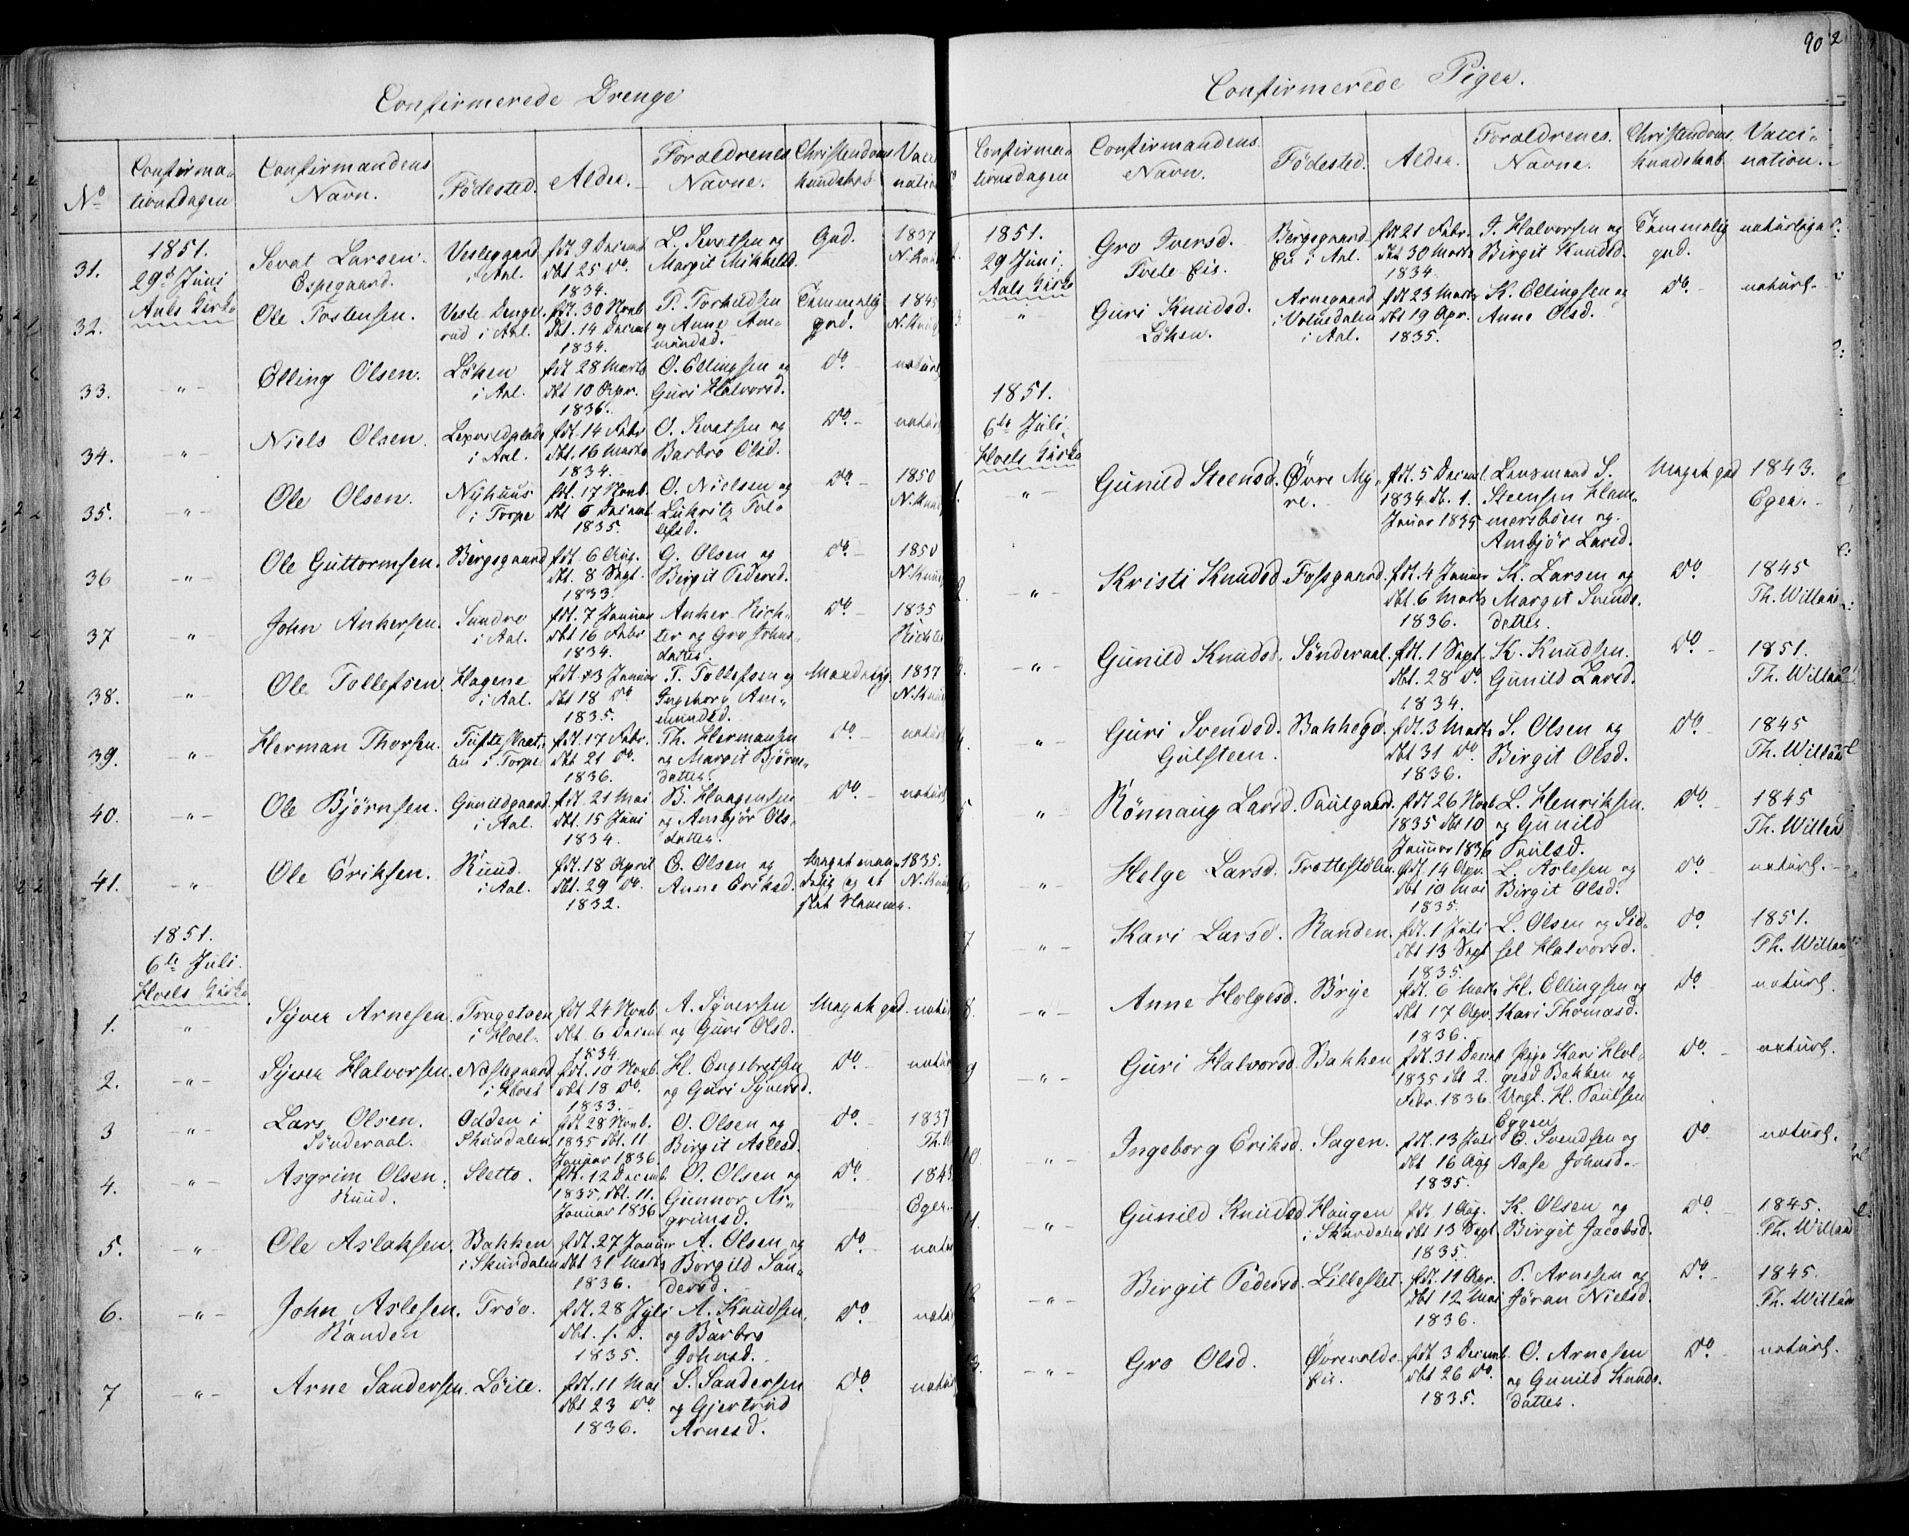 Confirmerede Drenge
No
Confirma-
tionsdagen
Confirmandens
Navn.
Födested.
Alder.
Foraldrenes
Navne.
Christendoms
kundskab
Vacci
nation
1851.
29de Juni
Aals Kirke
31.
Sevat Larsen.
Espegaard.
Veslegaard
i Aal.
fdt 9 Decemb
dbt 25 do.
1834.
L. Sevatsen og
Margit Mikkelsd.
God.
1837
N. Knud
32.
Ole Tostensen.
Vesle Denge-
rud i Aal.
fdt. 30 Novb.
dbt. 14 Decemb
1834.
T. Torkildsen
og Anne Am-
mundsd.
Temmelig
god.
1845
N. Knud
33.
-"-
Elling Olsen.
Löken
i Aal.
fdt 28 Marts
dbt 10 Apr.
1836.
O. Ellingsen og
Guri Halvorsd.
do.
naturl
34.
-"-
Niels Olsen.
i Aal.
fdt. 14 Febr
dbt. 16 Marts
1834.
O. Sevatsen og
Barbro Olsd.
do.
natur
35.
-"-
Ole Olsen.
Nyhuus
i Torpe
fdt. 17 Novb.
dbt 6 Decemb.
1835.
O. Nielsen og
do.
1850
N. Knud
36
-"-
Ole Guttormsen.
Bergsgaard
fdt. 6 Aug.
dbt. 8 Sept.
1833.
G. Olsen og
Birgit Pedersd.
do.
1850
N. Knud
37
-"-
John Ankersen.
Sundre
i Aal.
fdt. 7 Januar
dbt 16 Febr
1834.
Anker Rich-
ter og Gro Johns-
datter.
do.
1835
Richter
38.
-"-
Ole Tollefsen
Hagene
i Aal.
fdt. 13 Januar
dbt 18 do
1835.
T. Tollefsen og
Ingeborg Am-
mundsd.
Maadelig
1837
N. Knud
39.
-"-
Herman Thorsen.
Tufteslaat-
en i Torpe
fdt. 17 Febr.
dbt 21 do.
1836.
Th. Hermansen
og Margit Björns-
datter.
do.
natur
40.
-"-
Ole Björnsen.
Gunildgaard
i Aal.
fdt. 21 Mai
dbt. 15 Juni
1834.
B. Haagensen
og Ambjör Ols-
datter.
do.
naturl
41.
-"-
Ole Eriksen.
Ruud.
i Aal.
fdt. 18 April
dbt. 29 do.
1832.
E. Olsen og
Anne Eriksd.
Meget maa-
delig og et
slet Nemme.
1835.
N. Knud
1851.
6te Juli.
Hols Kirke
1.
"
Syver Arnesen.
Trogetoen
i Hoel.
fdt 24 Novb
dbt. 6 Decemb
1834.
A. Syversen
og Guri Olsd.
Meget god.
natur
2.
-"-
Syver Halvorsen.
Næstegaard
i Hoel
fdt. 10 Novb.
dbt 18 do.
1833.
H. Engebretsen
og Guri Syversd.
do.
natur
3
-"-
Lars Olsen.
Sönderaal.
Odden i
Skurdalen
fdt 28 Novb.
1835 dbt. 11
Januar 1836
O. Olsen og
Birgit Aslesd.
do.
1837
Th.
4.
-"-
Asgrim Olsen.
Ruud.
Sletto.
fdt. 12 Decemb
1835. dbt. 11.
Januar 1836
O. Olsen og
Gunnor As-
grimsd.
do.
1845
Eger.
5.
"
Ole Aslaksen.
Bakken
i Skurdalen
fdt. 27 Januar
dbt 31 Marts
1836.
A. Olsen og
Borgild San-
dersd.
do.
natur
6.
-"-
John Aslesen.
Randen
Tröo.
fdt. 28 Juli
dbt. s. D.
1835.
A. Knudsen
og Barbro
Johnsd.
do
natur
7
-"-
Arne Sandersen.
Löite.
fdt. 11 Mai
dbt 23 do
1836.
S. Sandersen
og Gjertrud
Arnesd.
do
natur
902
Confirmerede Piger.
Confirma-
tionsdagen
Confirmandens
Navn.
Födested.
Alder.
Foraldrenes
Navne.
Christendoms
kundskab
Vacci-
nation.
1851.
29 Juni.
Aals Kirke
Gro Iversd.
Tvete Eie.
Bergsgaard
Eie i Aal.
fdt 21 Febr.
dbt 30 Marts
1834.
I. Halvorsen og
Birgit Knudsd.
Temmelig
god.
naturlige
"
Guri Knudsd.
Löken.
Arnegaard
i Votnedalen
i Aal.
fdt 23 Marts
dbt 19 Apr.
1835.
K. Ellingsen og
Anne Olsd.
do.
naturl.
1851.
6te Juli.
Hoels Kirke
1.
-"-
Gunild Steensd.
Övre My-
re.
fdt. 5 Decemb.
1834. db. 1.
Januar 1835
Lensmand S.
Steensen Ham-
mersböen og
Ambjör Larsd.
Meget god
1843.
Eger.
2.
-"-
Kristi Knudsd.
Fossgaard.
fdt. 4 Januar
dbt. 6 Marts
1836.
K. Larsen og
Margit Svends-
datter.
do
1845
Th. Willan
-"-
Gunild Knudsd.
Sönderaal.
fdt. 1 Sept.
dbt. 28 do
1834.
K. Knudsen.
Gunild Larsd.
do.
1851.
Th. Willan
4.
-"-
Guri Svendsd.
Gulsteen.
Bakkegd.
fdt. 3 Marts
dbt 31 do
1836.
S. Olsen og
Birgit Olsd.
do.
1845
Th. Willan
5
"
Rönnaug Larsd.
Paulgaard.
fdt 26 Novb
1835 dbt 10
Januar 1836
L. Henriksen
og Gunild
Paulsd.
do.
1845
Th. Willan
6
"
Helge Larsd.
Trættestölen.
fdt. 14 Apr.
dbt 10 Mai
1835.
L. Aslesen og
Birgit Olsd.
do.
naturl.
7
-"-
Kari Larsd.
Randen.
fdt. 1 Juli
dbt 13 Sept
1835.
L. Olsen og Sid-
sel Halvorsd.
do.
1851.
Th. Willan
8.
-"-
Anne Helgesd.
Brye
fdt. 6 Marts
dbt 17 Apr.
1836.
H. Ellingsen og
Kari Thomasd.
do.
naturl.
9
-"-
Guri Halvorsd.
Bakken
fdt. 31 Decmb
1835 dbt 2.
Febr. 1836
Pige Kari Hel-
gesd Bakken og
Ungk. H. Paulsen
Eggen
do.
naturl.
10.
-"-
Ingeborg Eriksd.
Sagen.
fdt. 13 Juli
dbt 16 Aug
1835.
E. Svendsen og
Aase Johnsd.
do
naturl.
11.
-"-
Gunild Knudsd
Haugen
i Skurdalen
fdt. 1 Aug.
dbt 13 Sept.
1835.
K. Olsen og
Birgit Jacobsd.
do.
1845.
Th. Willan
12
-"-
Birgit Pedersd.
Lilleslet.
fdt. 11 Apr.
dbt 12 Mai
1836.
P. Arnesen og
Jöran Nielsd.
do.
1845.
Th. Willan
-"-
Gro Olsd.
Eie.
fdt 3 Decemb.
dbt 26 do.
1835.
O. Arnesen
og Gunild Knuds-
datter.
do.
naturl.